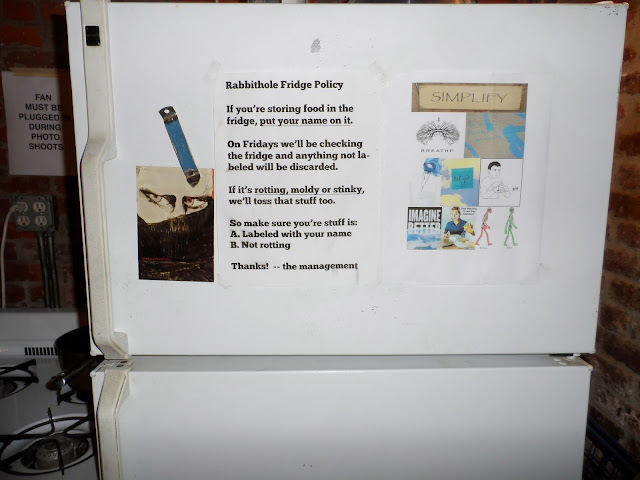 FAN
MUST BE
PLUGGED IN
DURING
PHOTO
SHOOTS
Rabbithole Fridge Policy
If you're storing food in the
fridge, put your name on it.
On Fridays we'll be checking
the fridge and anything not la-
beled will be discarded.
If it's rotting, moldy or stinky,
we'll toss that stuff too.
So make sure you're stuff is:
A. Labeled with your name
B. Not rotting
Thanks! -- the management
SIMPLIFY
BREATHE
IMAGINE
BETTER